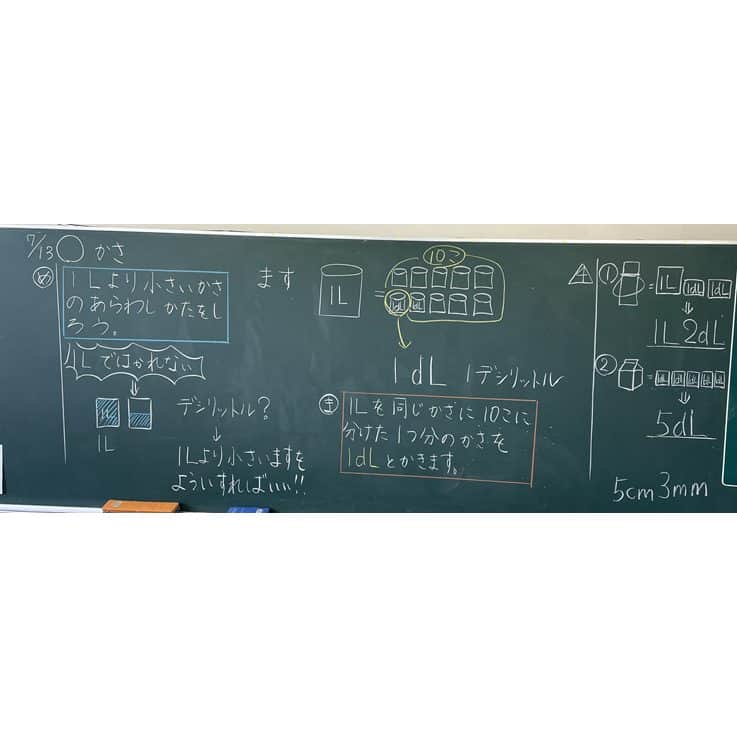 7/13 かさ
め
1Lより小さいかさ
のあらわしかたをし
ろう。
1Lではかれない
1L
1L
デシリットル?
↓
1Lより小さいますを
よういすればいい!!
ます
1L
=
10こ
1dL
1dL
1dL 1デシリットル
ま
1Lを同じかさに10こに
分けた1つ分のかさを
1dLとかきます。
① = 1L 1dL 1dL
⇓
1L2dL
② = 1dL 1dL 1dL 1dL 1dL
⇓
5dL
5cm3mm